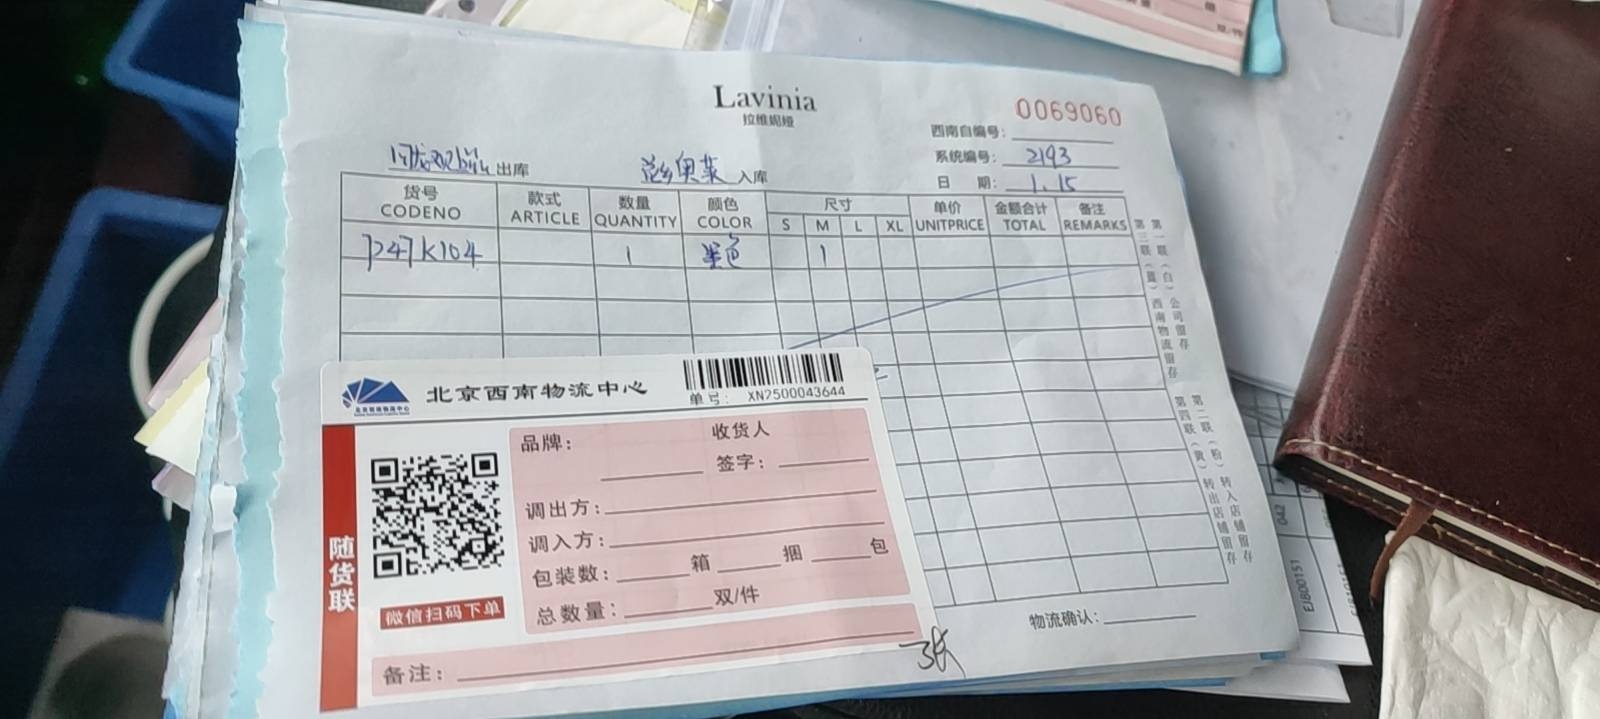 Lavinia
拉维妮娅
0069060
西南自编号:
系统编号: 2193
日 期: 1.15
出库
奥莱 入库
货号 款式 数量 颜色 尺寸 单价 金额合计 备注
CODENO ARTICLE QUANTITY COLOR S M L XL UNITPRICE TOTAL REMARKS
7247K104 1 黑色 1
第一联(白)公司留存
第三联(蓝)西南物流留存
第二联(粉)转入店铺留存
第四联(黄)转出店铺留存
北京西南物流中心
单号: XN2500043644
随货联
微信扫码下单
品牌:
收货人
签字:
调出方:
调入方:
包装数: 箱 捆 包
总数量: 双/件
备注:
物流确认:
EJB00151
042